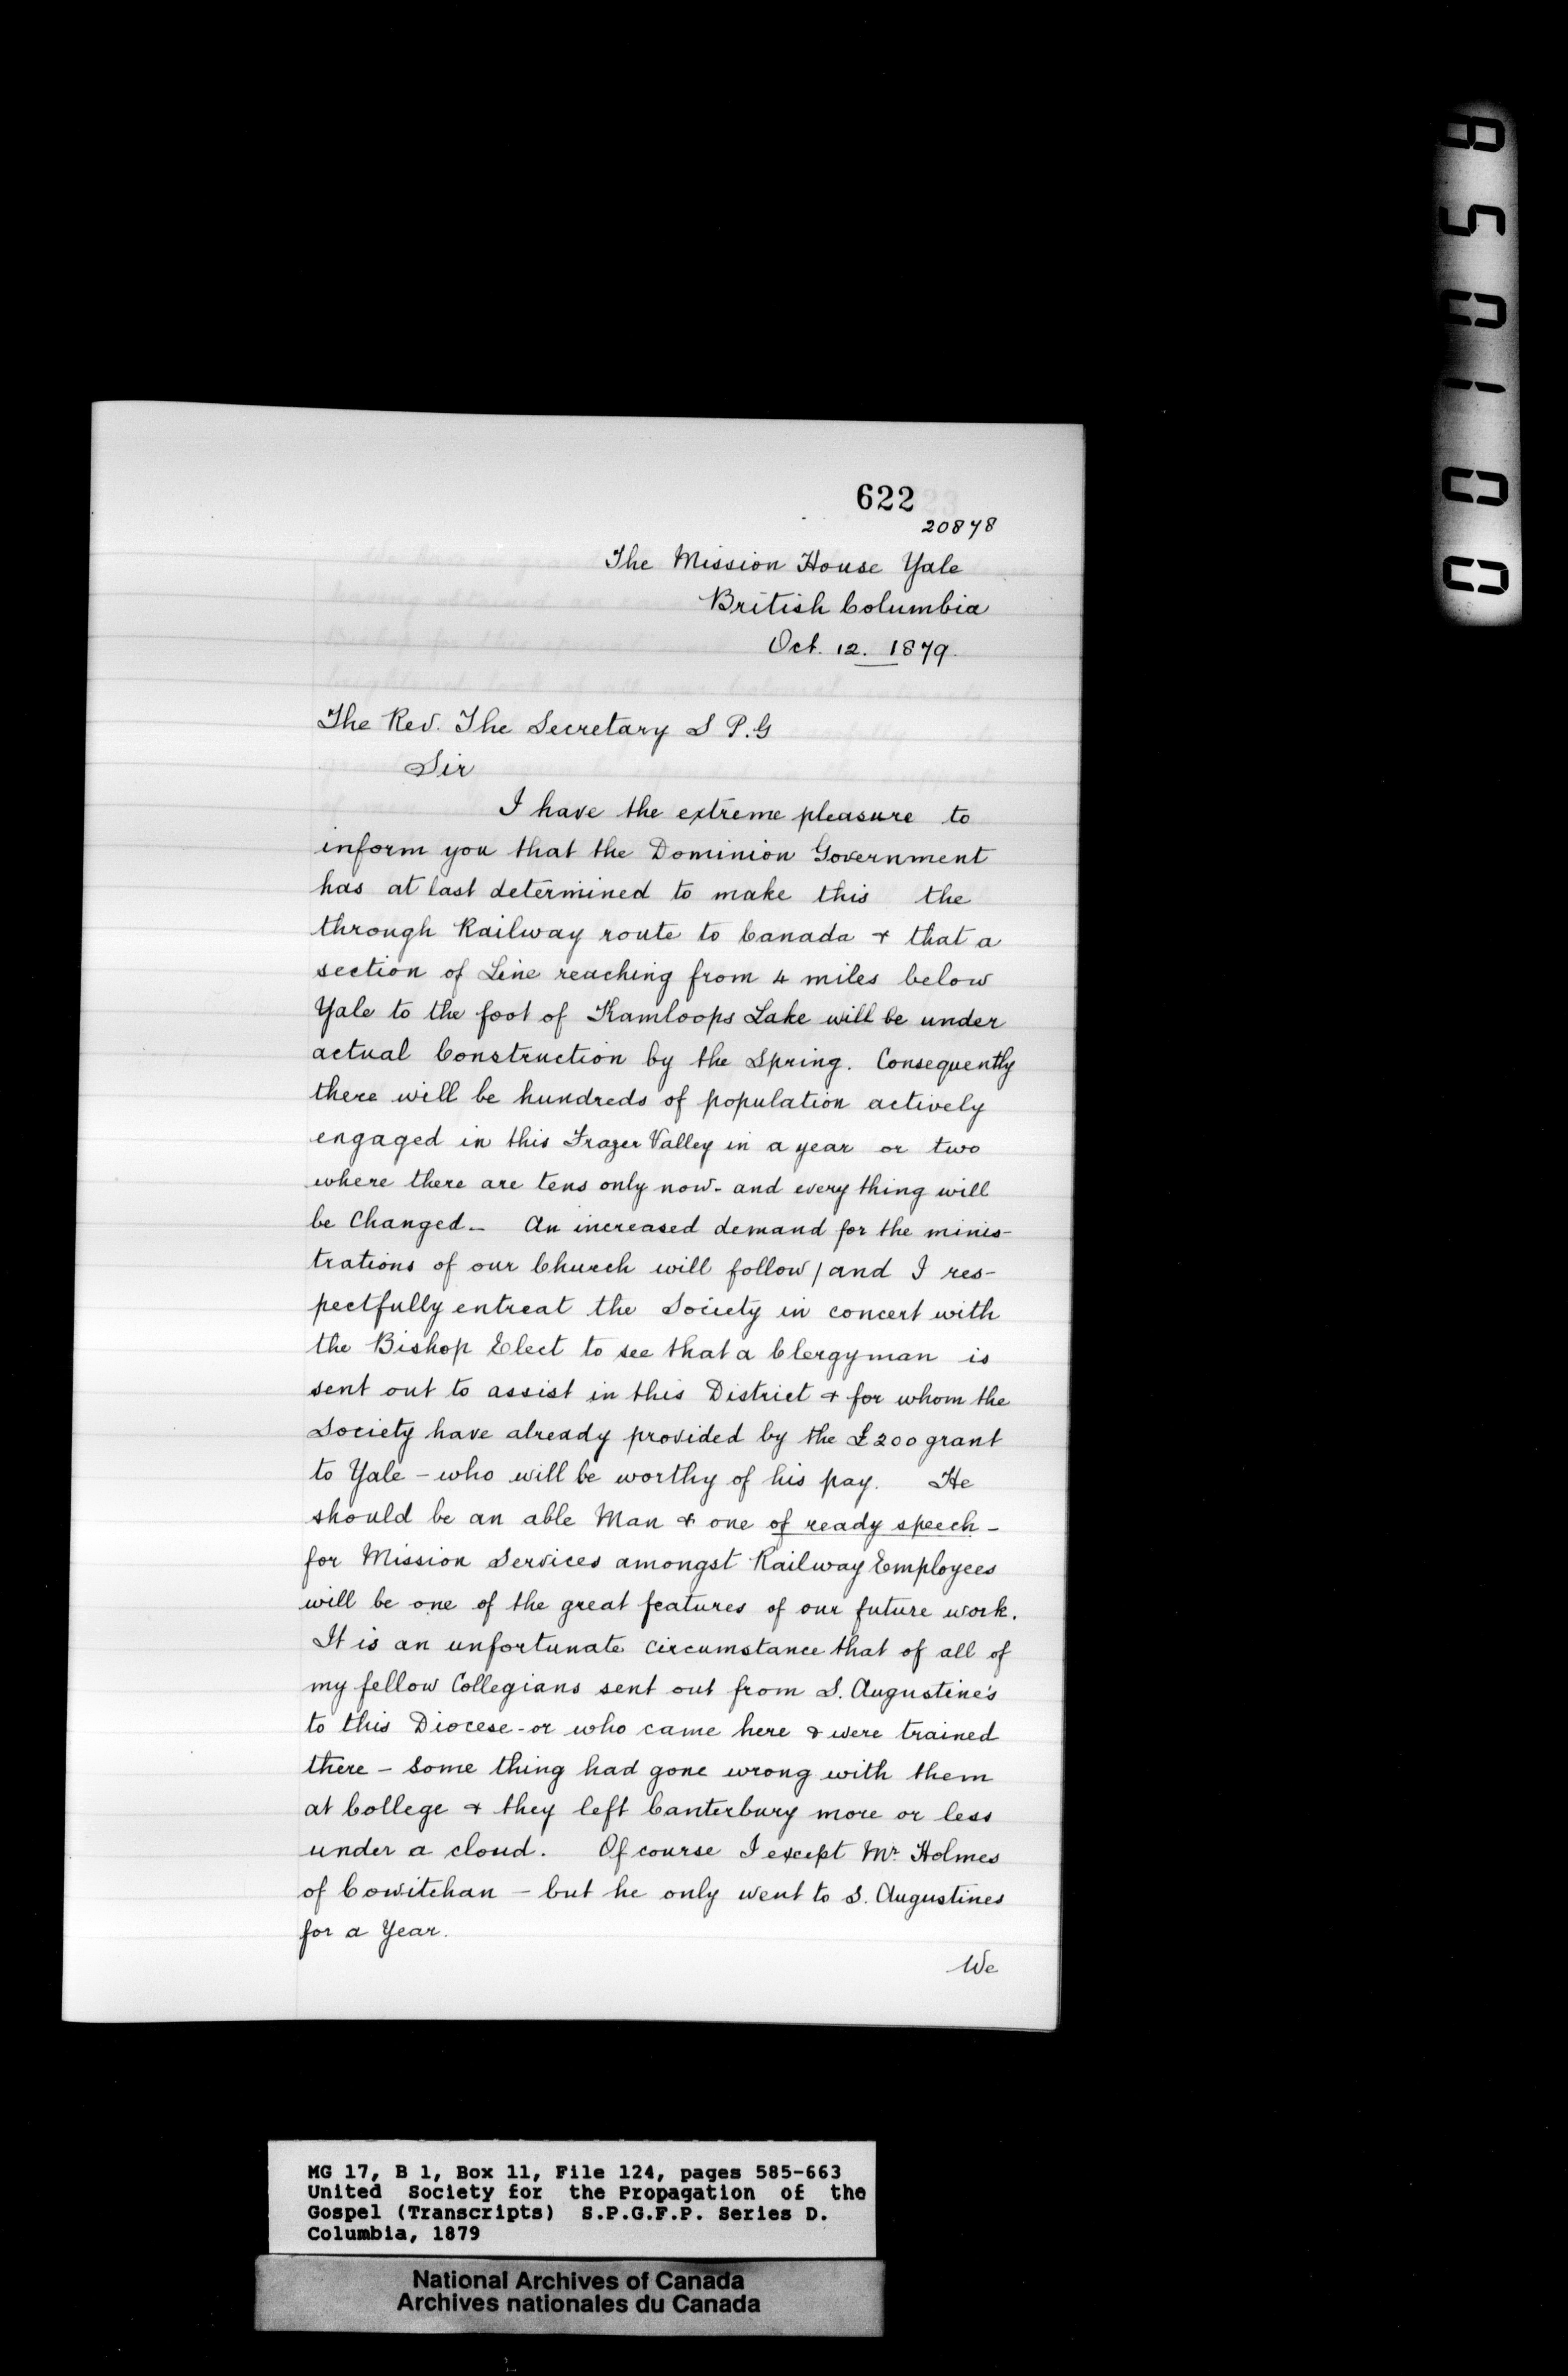 622
20878
The Mission House Yale
British Columbia
Oct. 12. 1879.
The Rev. The Secretary S P.G
Sir
I have the extreme pleasure to
inform you that the Dominion Government
has at last determined to make this the
through Railway route to Canada & that a
section of Line reaching from 4 miles below
Yale to the foot of Kamloops Lake will be under
actual Construction by the Spring. Consequently
there will be hundreds of population actively
engaged in this Frazer Valley in a year or two
where there are tens only now - and every thing will
be Changed - An increased demand for the minis-
trations of our Church will follow / and I res-
pectfully entreat the Society in concert with
the Bishop Elect to see that a Clergyman is
sent out to assist in this District & for whom the
Society have already provided by the £200 grant
to Yale - who will be worthy of his pay. He
should be an able Man & one of ready speech -
for Mission Services amongst Railway Employees
will be one of the great features of our future work.
It is an unfortunate circumstance that of all of
my fellow Collegians sent out from S. Augustine's
to this Diocese - or who came here & were trained
there - Some thing had gone wrong with them
at College & they left Canterbury more or less
under a cloud. Of course I except Mr Holmes
of Cowitchan - but he only went to S. Augustines
for a Year.
We
MG 17, B 1, Box 11, File 124, pages 585-663
United Society for the Propagation of the
Gospel (Transcripts) S.P.G.F.P. Series D.
Columbia, 1879
National Archives of Canada
Archives nationales du Canada